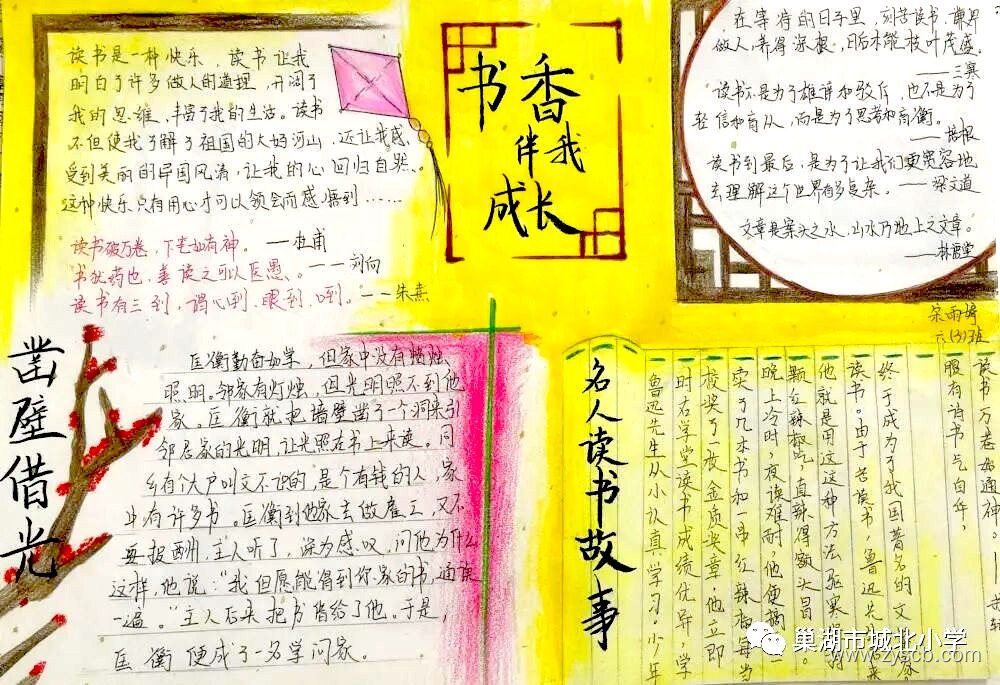 读书是一种快乐，读书让我
明白了许多做人的道理，开阔了
我的思维，丰富了我的生活。读书
不但使我了解了祖国的大好河山，还让我感
受到美丽的异国风情，让我的心回归自然。
这种快乐只有用心才可以领会而感悟到……
读书破万卷，下笔如有神。——杜甫
书犹药也，善读之可以医愚。——刘向
读书有三到，谓心到，眼到，口到。——朱熹
书香
伴我
成长
在等待的日子里，刻苦读书，谦卑
做人，养得深根，日后才能枝叶茂盛。
——三寞
读书不是为了雄辩和驳斥，也不是为了
轻信和盲从，而是为了思考和商衡。
——培根
读书到最后，是为了让我们更宽容地
去理解这个世界有多复杂。——梁文道
文章是案头之水，山水乃地上之文章。
——林语堂
宋雨婷
六(3)班
凿壁借光
匡衡勤奋好学，但家中没有蜡烛
照明。邻家有灯烛，但光明照不到他
家。匡衡就把墙壁凿了一个洞来引
邻居家的光明，让光照在书上来读。同
乡有个大户叫文不识的，是个有钱的人，家
中有许多书。匡衡到他家去做雇工，又不
要报酬，主人听了，深为感叹，问他为什么
这样，他说："我但愿能得到你家的书，通读
一遍。"主人后来把书借给了他。于是，
匡衡便成了一名学问家。
名人读书故事
读书万卷始通神。——苏轼
腹有诗书气自华，
终于成为了我国著名的文
读书。由于苦读书，鲁迅先生
他就是用这这种方法驱寒
颗红辣椒，直辣得额头冒
晚上冷时，夜读难耐，他便摘一
实了几本书和一串红辣椒每当
校奖了一枚金质奖章，他立即
时，在学堂读书成绩优异，学
鲁迅先生从小认真学习。少年
巢湖市城北小学
www.zyscb.com